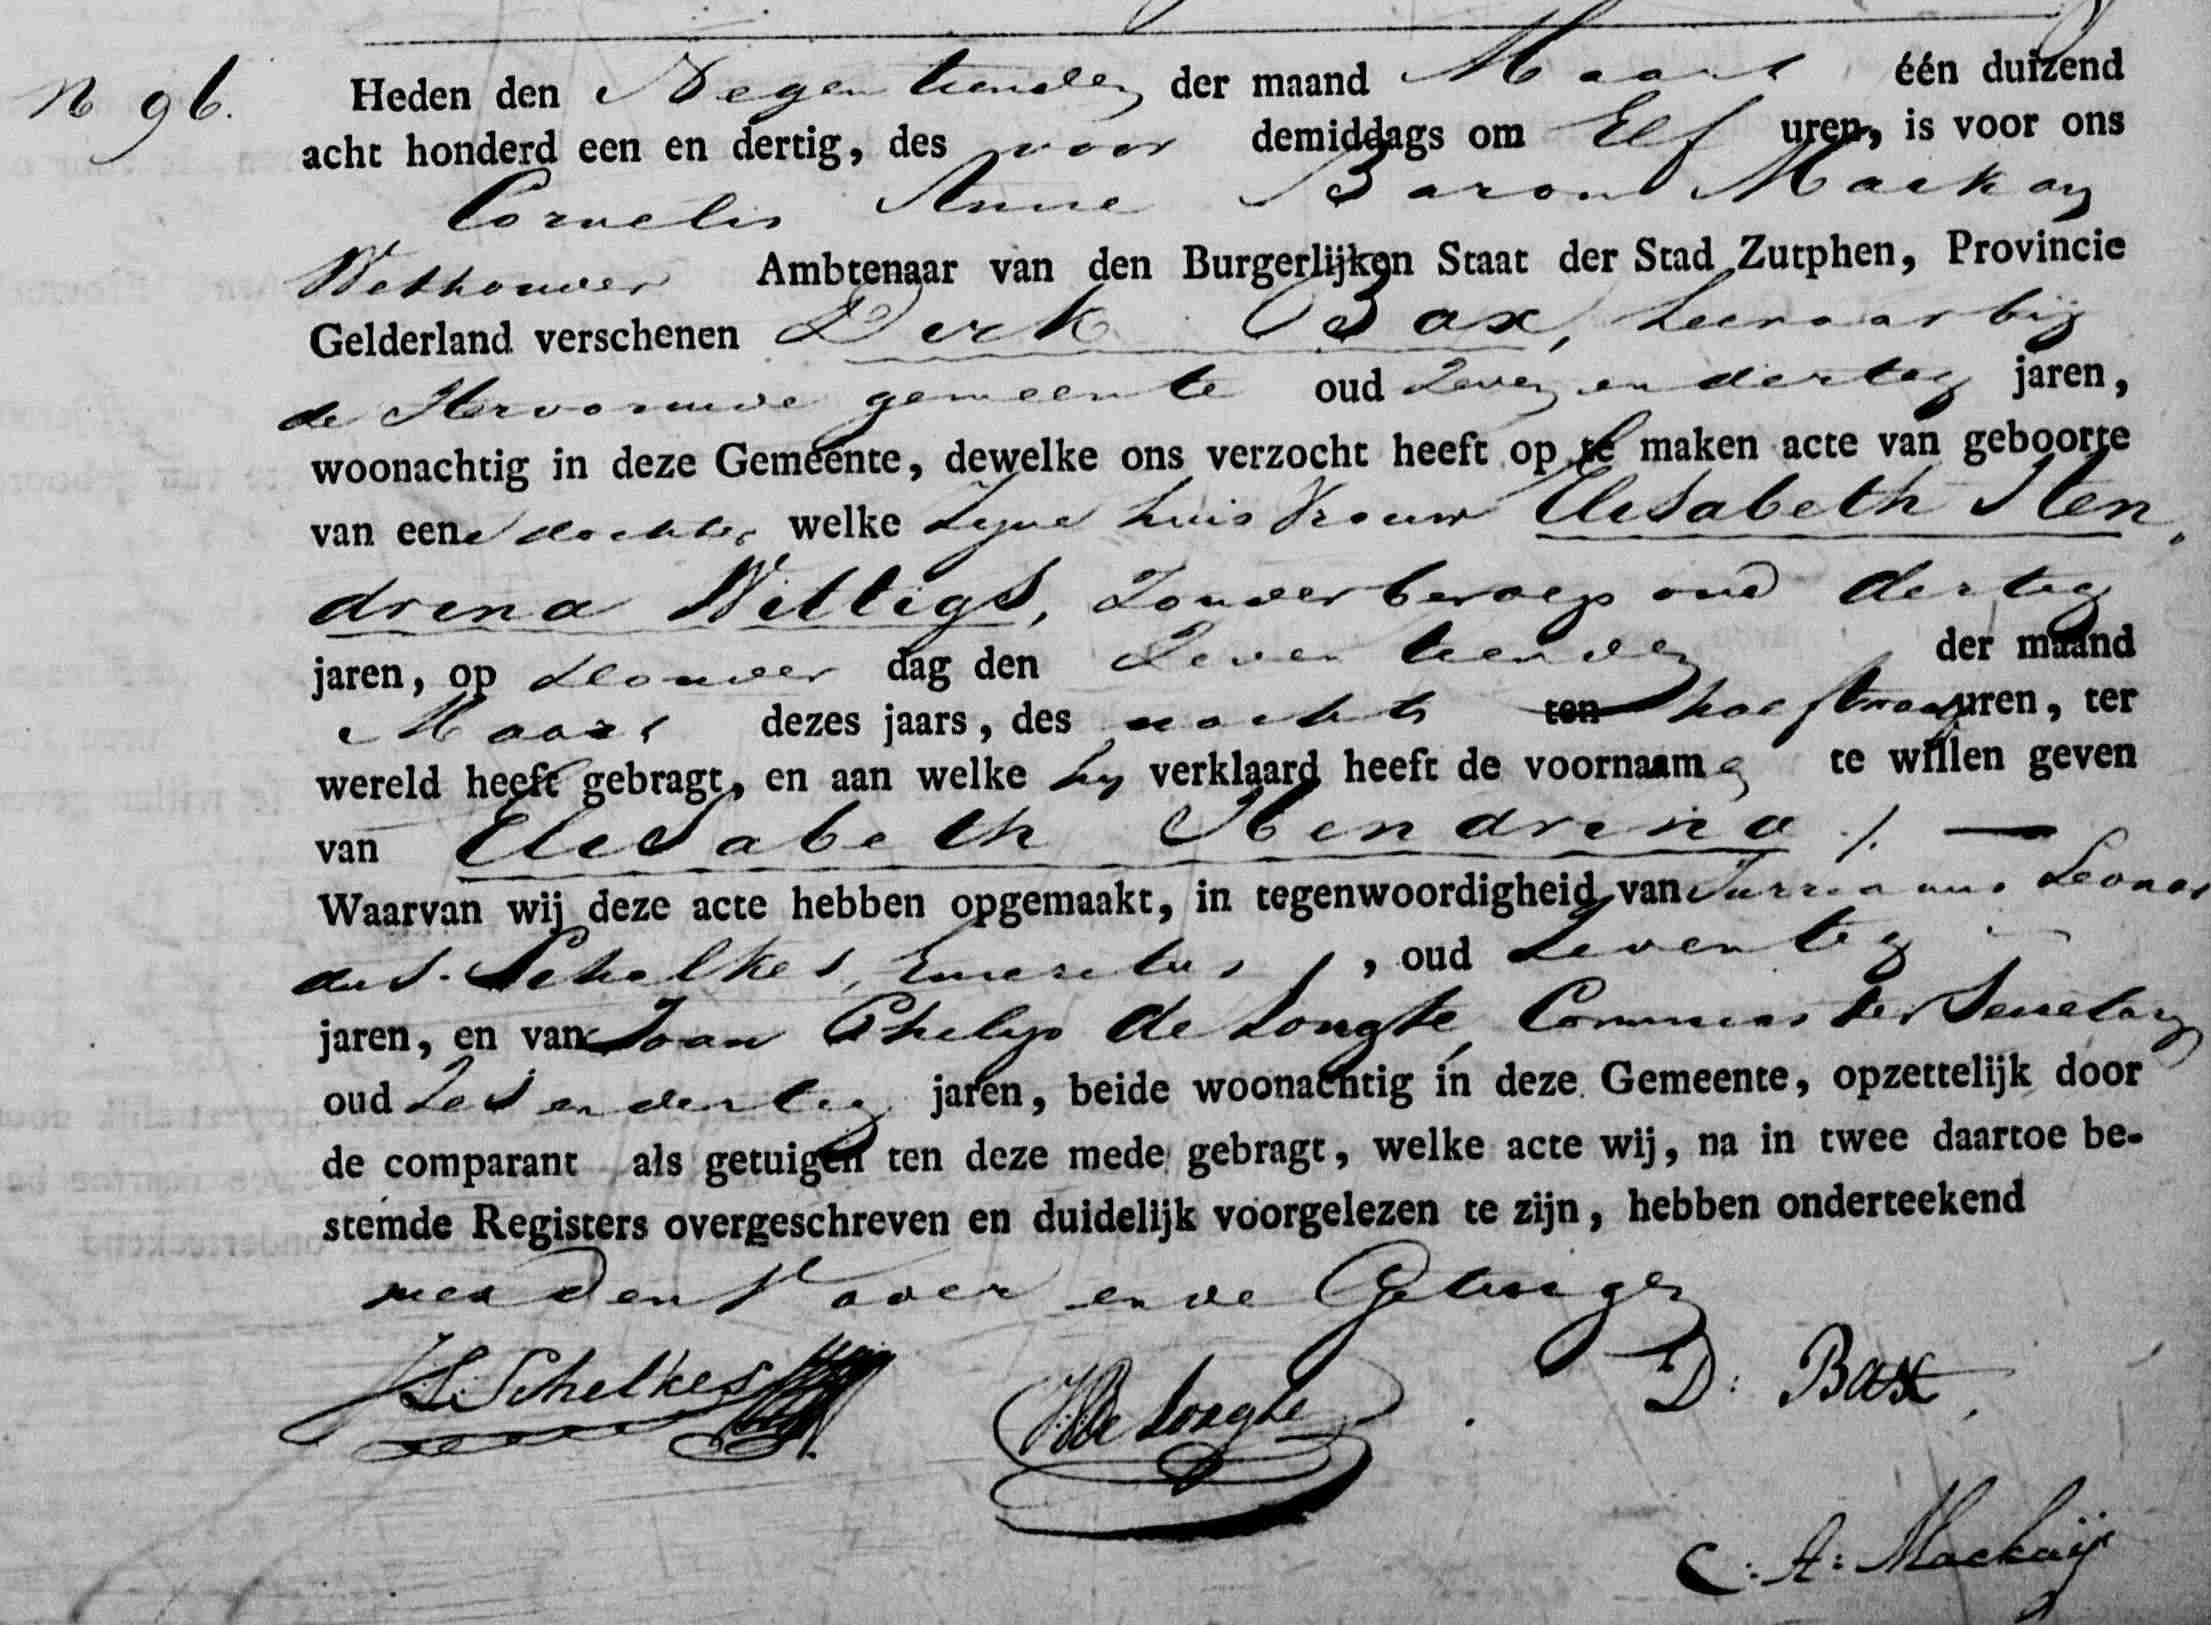 N 96.
Heden den Negentienden der maand Maart één duizend
acht honderd een en dertig, des voor demiddags om Elf uren, is voor ons
Cornelis Anne Baron Mackay
Wethouder Ambtenaar van den Burgerlijken Staat der Stad Zutphen, Provincie
Gelderland verschenen Derk Bax, Leeraar bij
de Hervormde gemeente oud Zeven en dertig jaren,
woonachtig in deze Gemeente, dewelke ons verzocht heeft op te maken acte van geboorte
van eene dochter welke Zijne huisvrouw Elisabeth Hen
drina Willigs, Zonder beroep oud dertig
jaren, op donder dag den Zeventienden der maand
Maart dezes jaars, des nachts ten half twee uren, ter
wereld heeft gebragt, en aan welke hij verklaard heeft de voornaamen te willen geven
van Elisabeth Hendrina ./. —
Waarvan wij deze acte hebben opgemaakt, in tegenwoordigheid van Jurrianus Leonar
dus Schelkes, Emeritus, oud Zeventig
jaren, en van Joan Philip de Longte, Commies ter Secretary
oud Zes en dertig jaren, beide woonachtig in deze Gemeente, opzettelijk door
de comparant als getuigen ten deze mede gebragt, welke acte wij, na in twee daartoe be-
stemde Registers overgeschreven en duidelijk voorgelezen te zijn, hebben onderteekend
met den Vader en de Getuigen
J. L. Schelkes
de Longte
D: Bax,
C: A: Mackaij